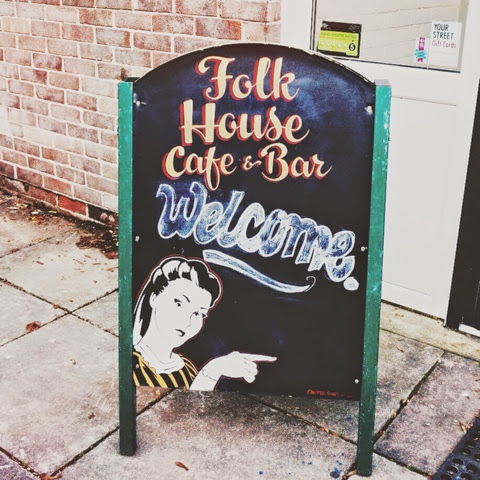 YOUR
STREET
Gift Cards
5
Folk
House
Cafe & Bar
Welcome.